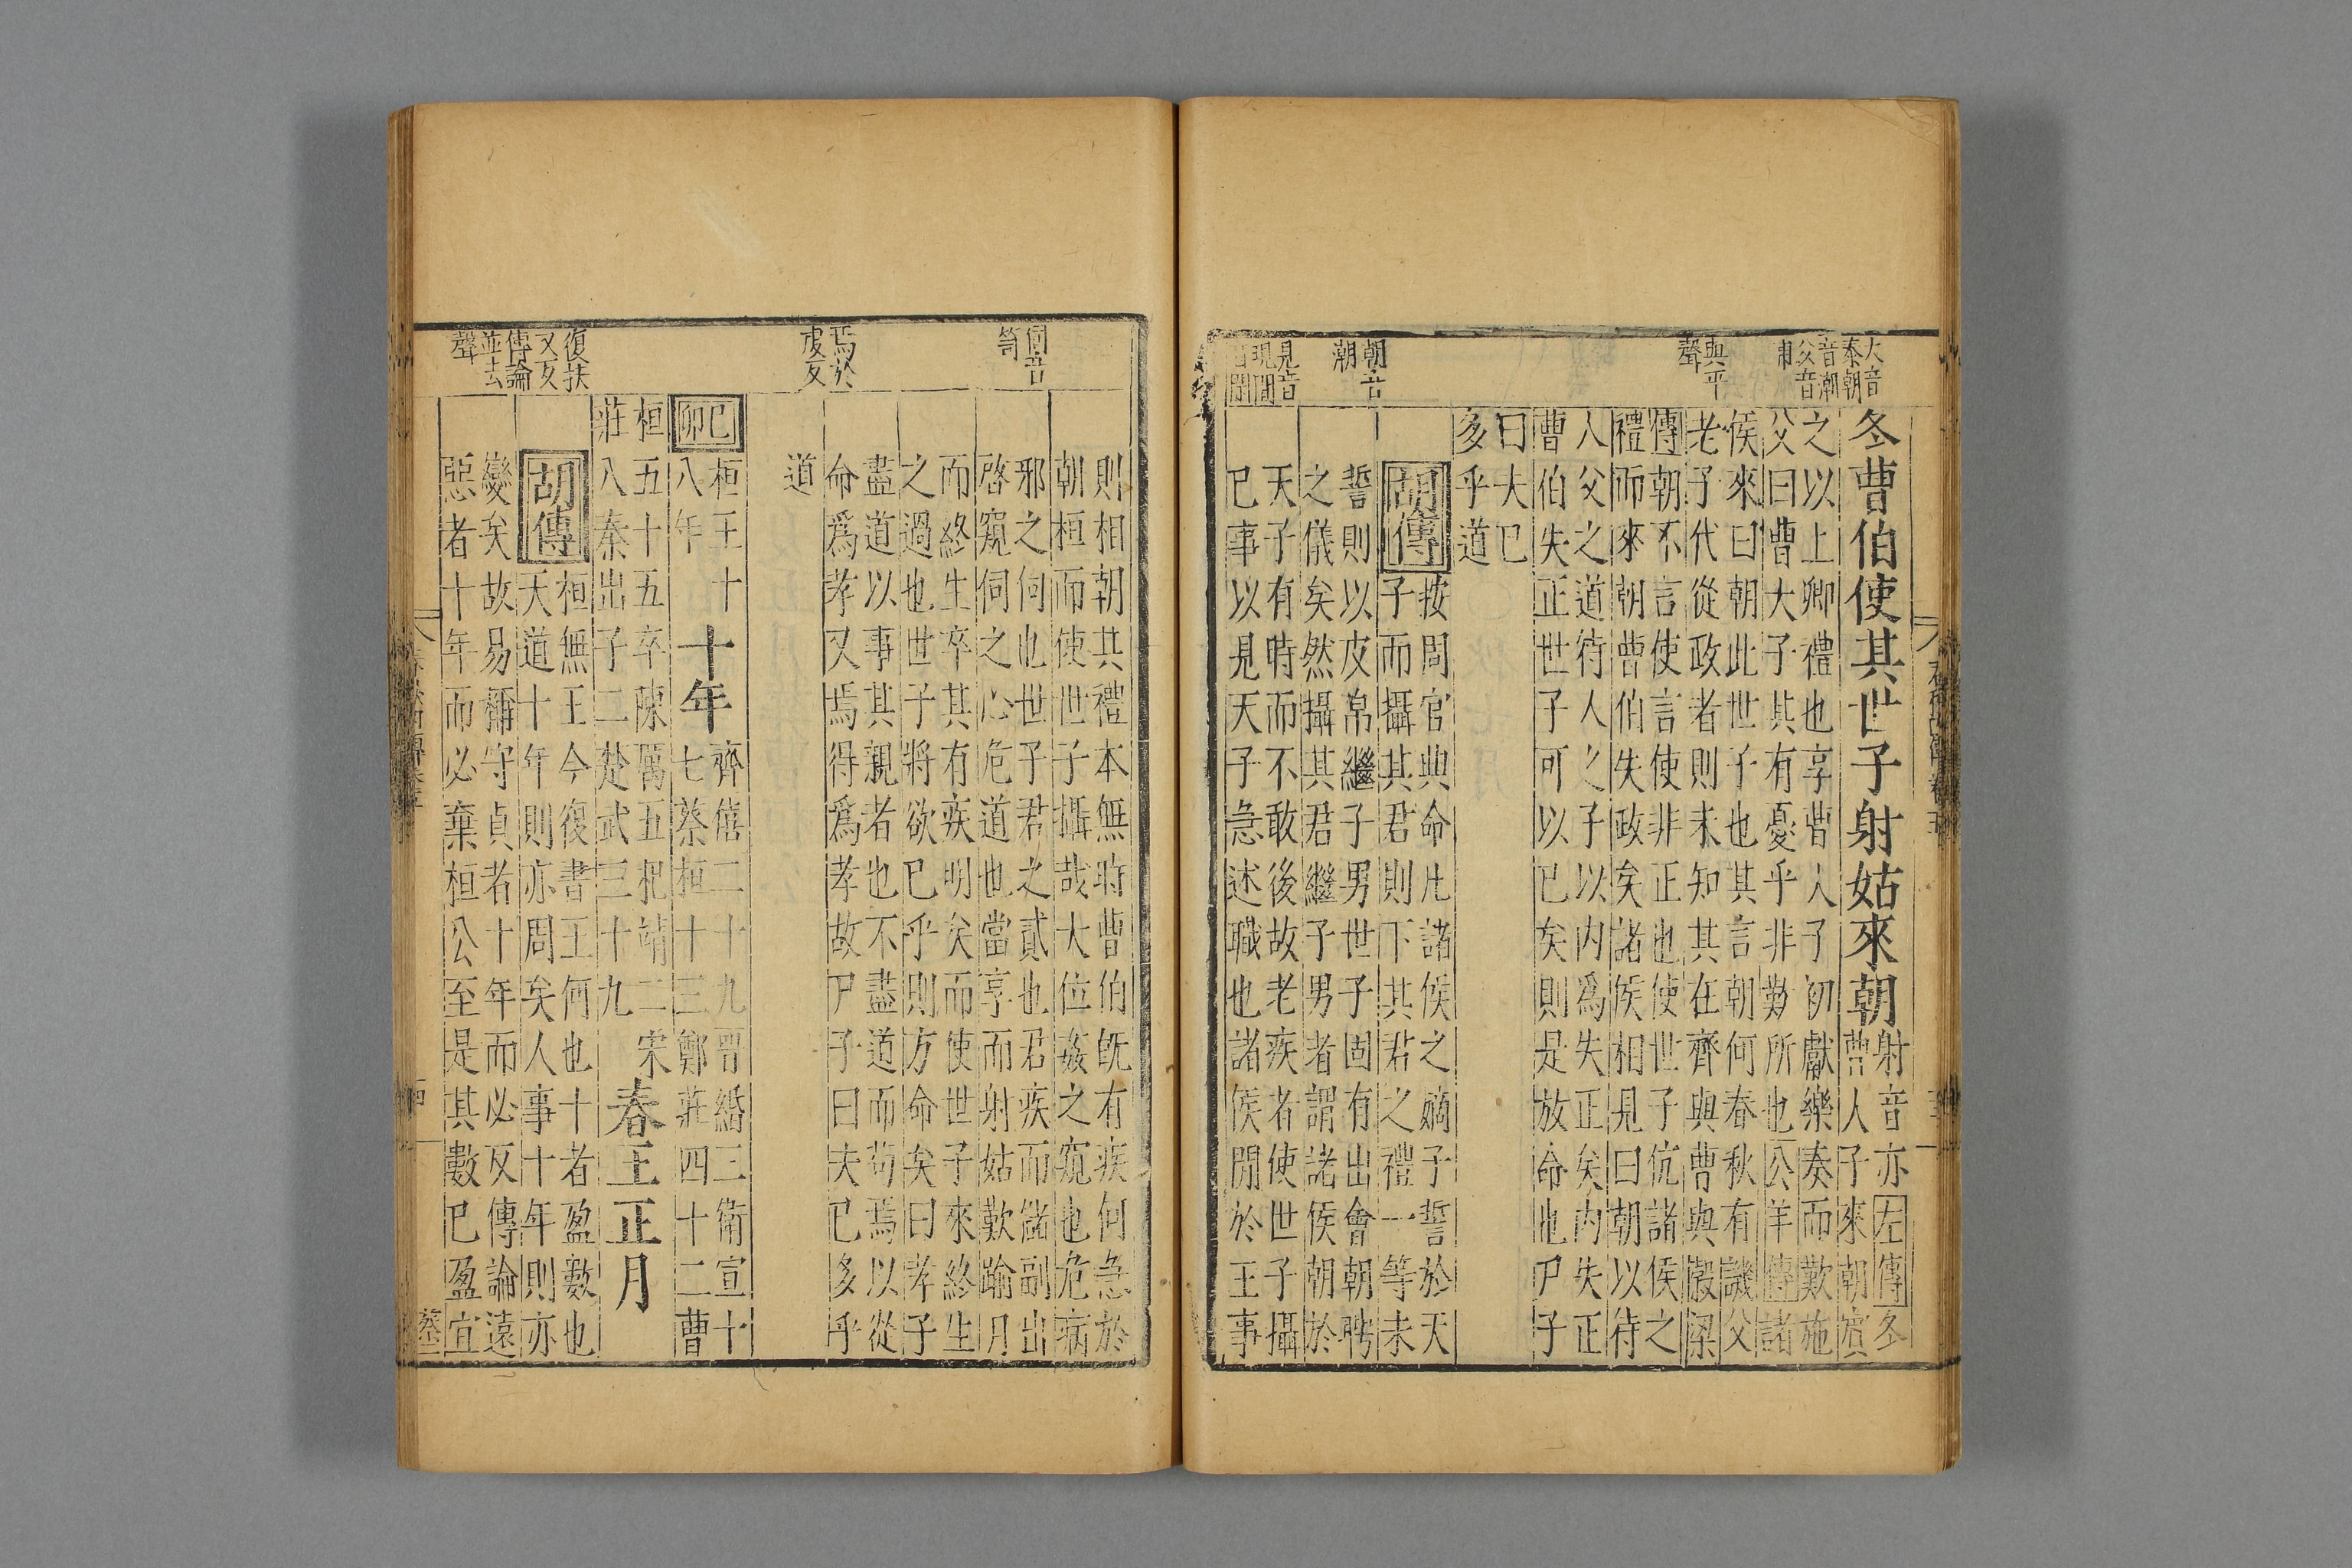 大音
泰朝
音潮
父音
甫
與平
聲
朝音
潮
見音
現間
冬曹伯使其世子射姑來朝
射音亦左傳冬
曹人子來朝賔
之以上卿禮也享曹人子初獻樂奏而歎施
父曰曹大子其有憂乎非歎所也公羊傳諸
侯來曰朝此世子也其言朝何春秋有譏父
老子代從政者則未知其在齊與曹與糓梁
傳朝不言使言使非正也使世子伉諸侯之
禮而來朝曹伯失政矣諸侯相見曰朝以待
人父之道待人之子以内爲失正矣内失正
曹伯失正世子可以已矣則是放命也尸子
曰夫已
多乎道
胡傳
按周官典命凡諸侯之嫡子誓於天
子而攝其君則下其君之禮一等未
誓則以皮帛繼子男世子固有出會朝聘
之儀矣然攝其君繼子男者謂諸侯朝於
天子有時而不敢後故老疾者使世子攝
已事以見天子急述職也諸侯閒於王事
伺音
笥
焉於
虔反
復扶
又反
傳論
並去
聲
則相朝其禮本無時曹伯旣有疾何急於
朝桓而使世子攝哉大位姦之窺也危病
邪之伺也世子君之貳也君疾而儲副出
啓窺伺之心危道也當享而射姑歎踰月
而終生卒其有疾明矣而使世子來終生
之過也世子將欲已乎則方命矣曰孝子
盡道以事其親者也不盡道而苟焉以從
命爲孝又焉得爲孝故尸子曰夫已多乎
道
己卯
桓王十
八年
十年
齊僖二十九晋緡三衛宣十
七蔡桓十三鄭莊四十二曹
桓五十五卒陳厲五杞靖二宋
莊八秦出子二楚武三十九
春王正月
胡傳
桓無王今復書王何也十者盈數也
天道十年則亦周矣人事十年則亦
變矣故易稱守貞者十年而必反傳論遠
惡者十年而必棄桓公至是其數已盈宜